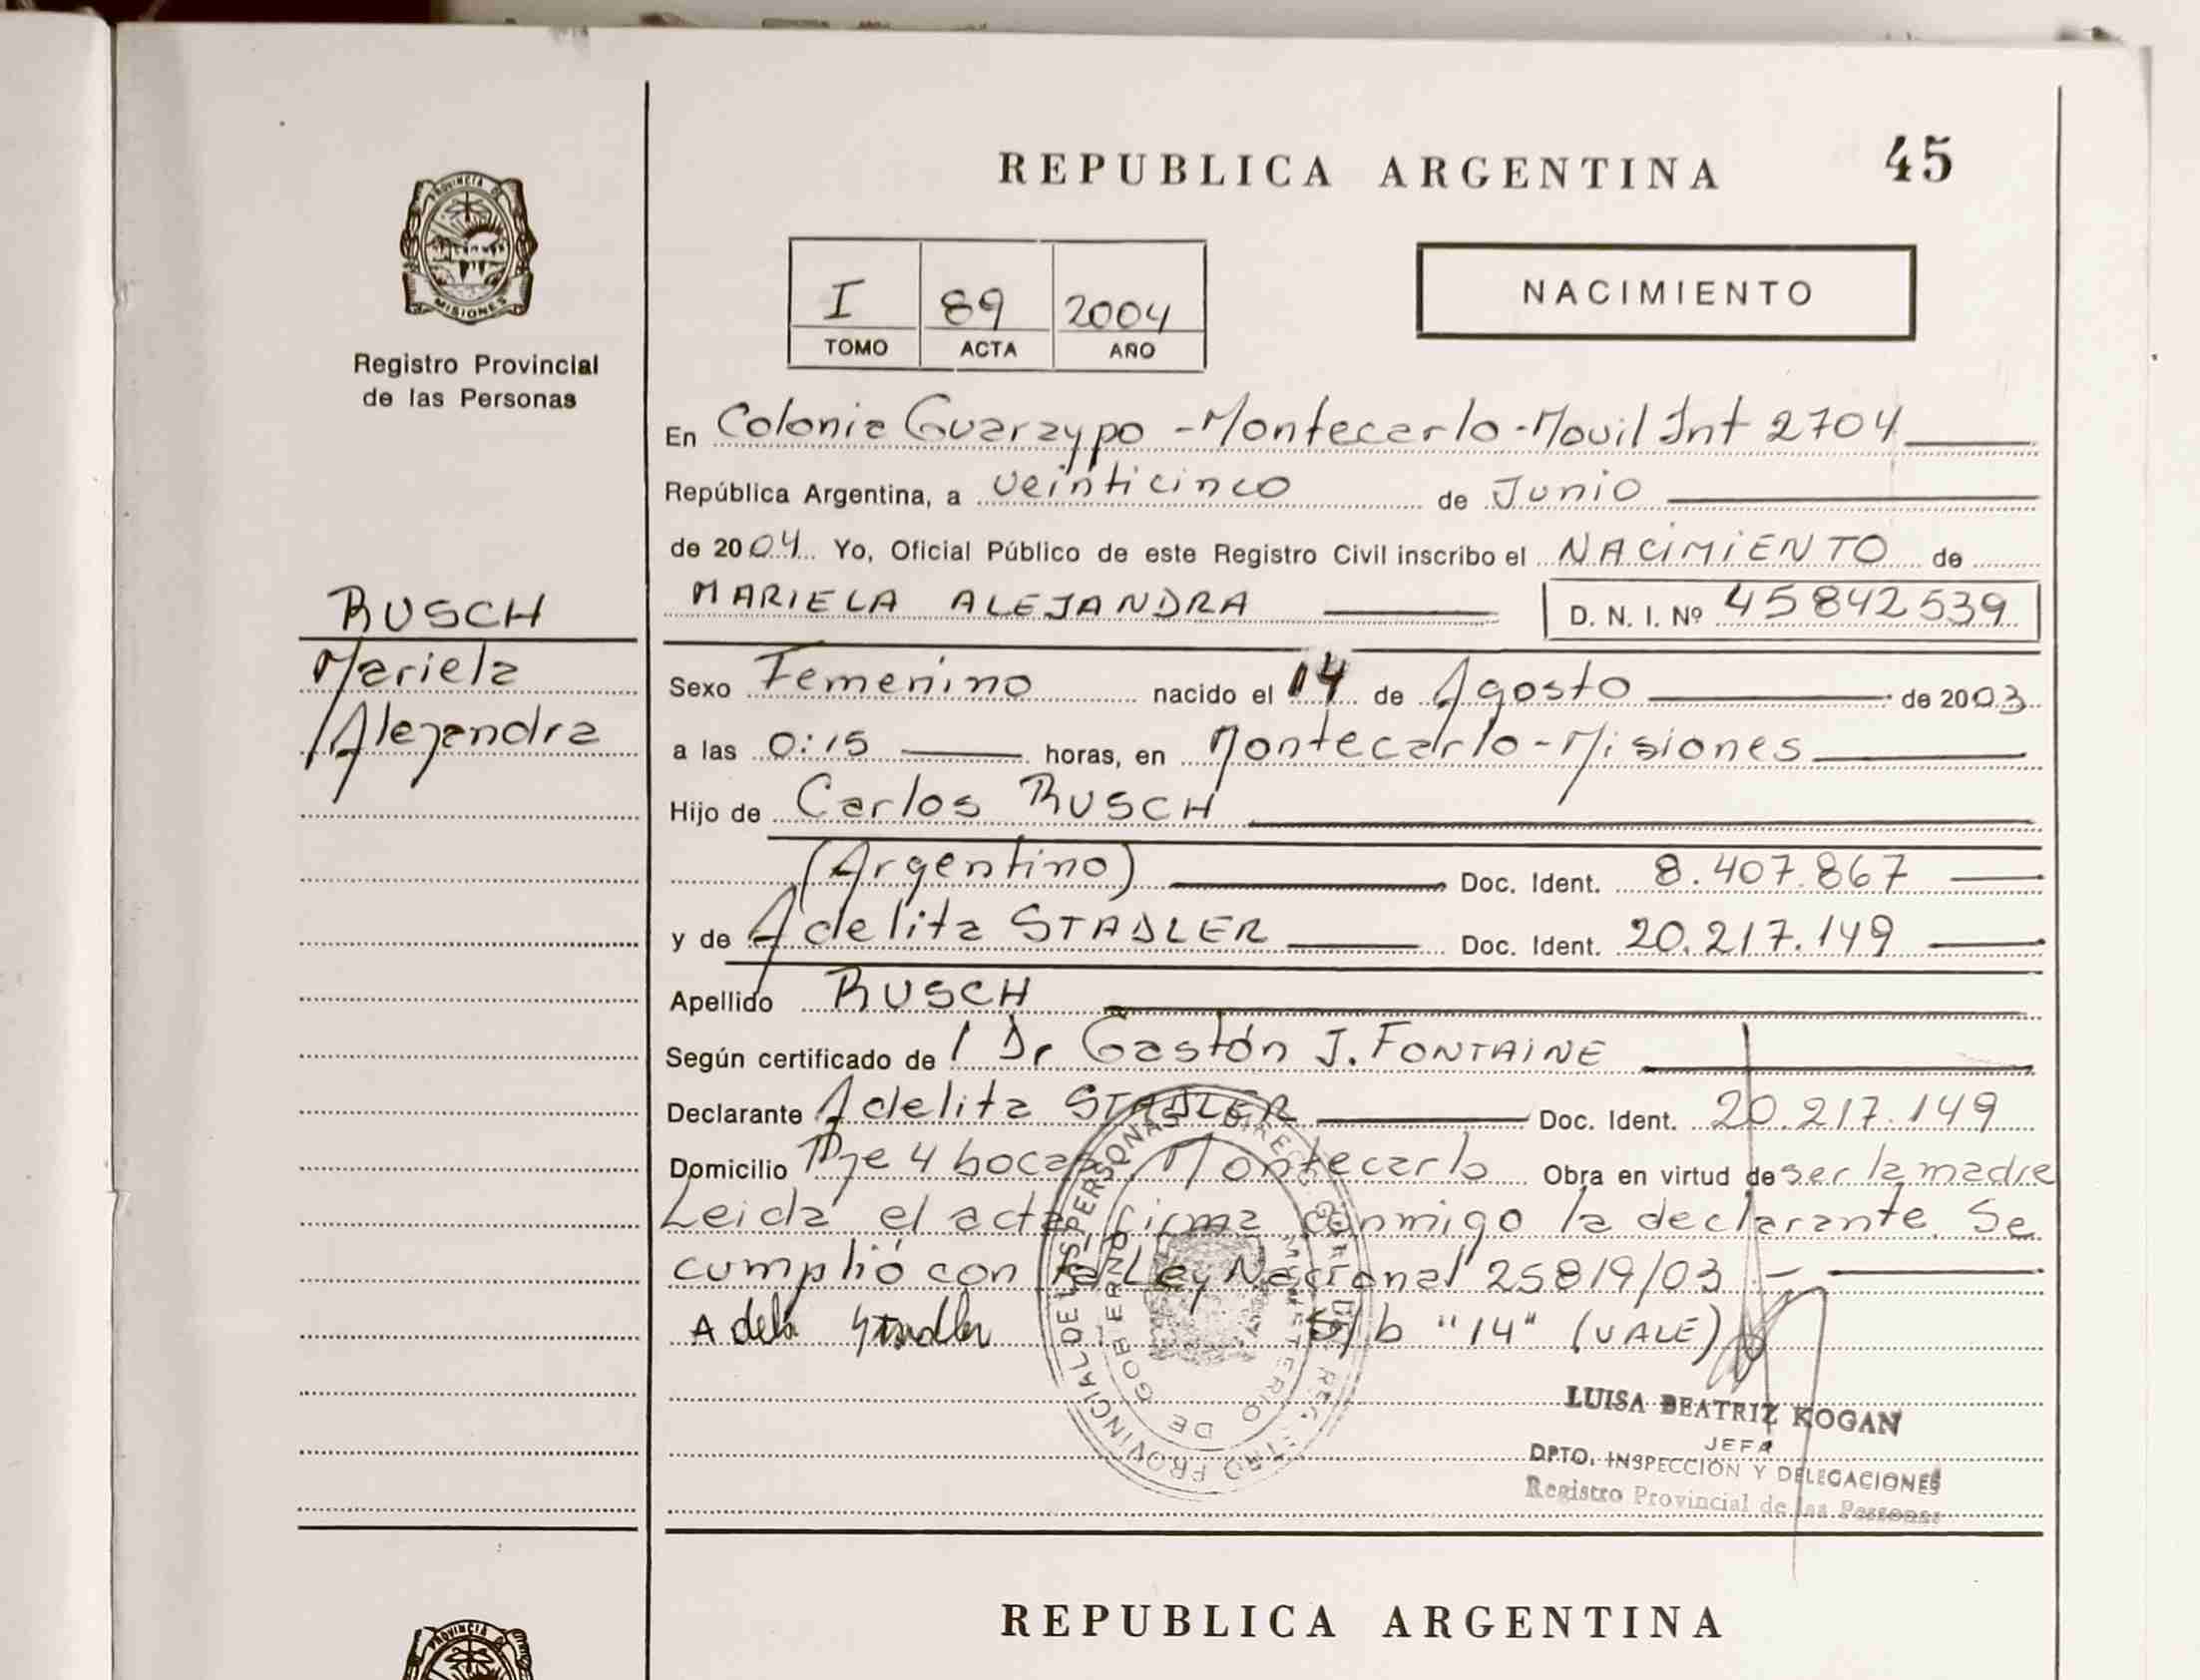 REPUBLICA ARGENTINA
45
PROVINCIA DE
MISIONES
Registro Provincial
de las Personas
I 89 2004
TOMO ACTA AÑO
NACIMIENTO
En Colonia Guaraypo - Montecarlo - Movil Int 2704
República Argentina, a veinticinco de Junio
de 2004 Yo, Oficial Público de este Registro Civil inscribo el NACIMIENTO de
MARIELA ALEJANDRA D. N. I. Nº 45842539
RUSCH
Mariela
Alejandra
Sexo Femenino nacido el 14 de Agosto de 2003
a las 0:15 horas, en Montecarlo - Misiones
Hijo de Carlos RUSCH
(Argentino) Doc. Ident. 8.407.867
y de Adelita STADLER Doc. Ident. 20.217.149
Apellido RUSCH
Según certificado de Dr Gastón J. FONTAINE
Declarante Adelita STADLER Doc. Ident. 20.217.149
Domicilio 4 bocas Montecarlo Obra en virtud de ser la madre
Leida el acta, firma conmigo la declarante. Se
cumplió con la Ley Nacional 25819/03 -
Adela Stadler S/b "14" (VALE)
REGISTRO PROVINCIAL DE LAS PERSONAS
MINISTERIO DE GOBIERNO
LUISA BEATRIZ KOGAN
JEFA
DPTO. INSPECCIÓN Y DELEGACIONES
Registro Provincial de las Personas
REPUBLICA ARGENTINA
PROVINCIA